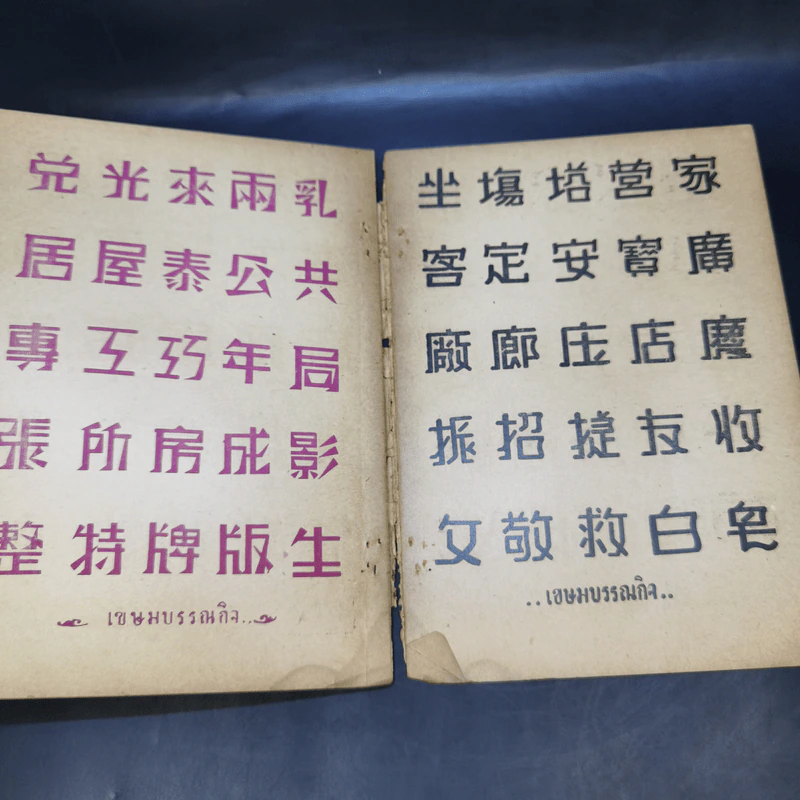 兌光來兩乳
居屋泰公共
專工巧年局
張所房成影
整特牌版生
เขษมบรรณกิจ..
坐塲塔營家
客定安寶廣
廠廊庄店慶
振招捷友收
文敬救白皂
..เขษมบรรณกิจ..